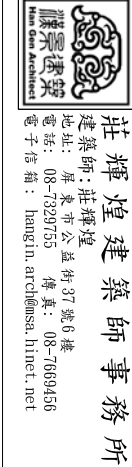 漢艮建築
Han Gen Architect
莊輝煌建築師事務所
建築師:莊輝煌
地址: 屏東市公益街37號6樓
電話: 08-7329755 傳真: 08-7669456
電子信箱: hangin.arch@msa.hinet.net